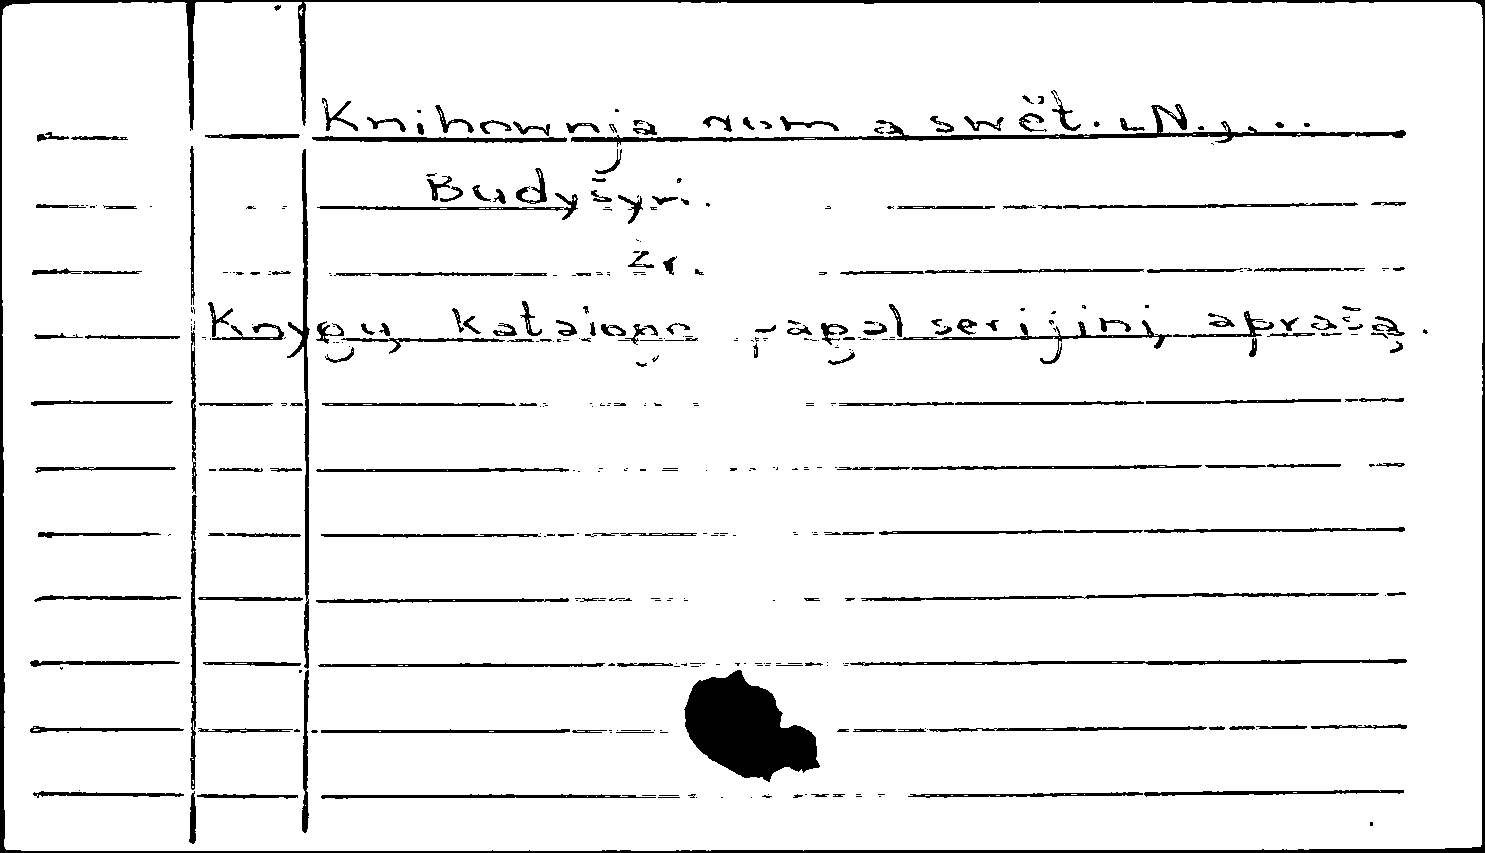 Knihownja dom a swět. N. j. ...
Budyšyn.
žr.
Knygų kataloge pagal serijinį aprašą.